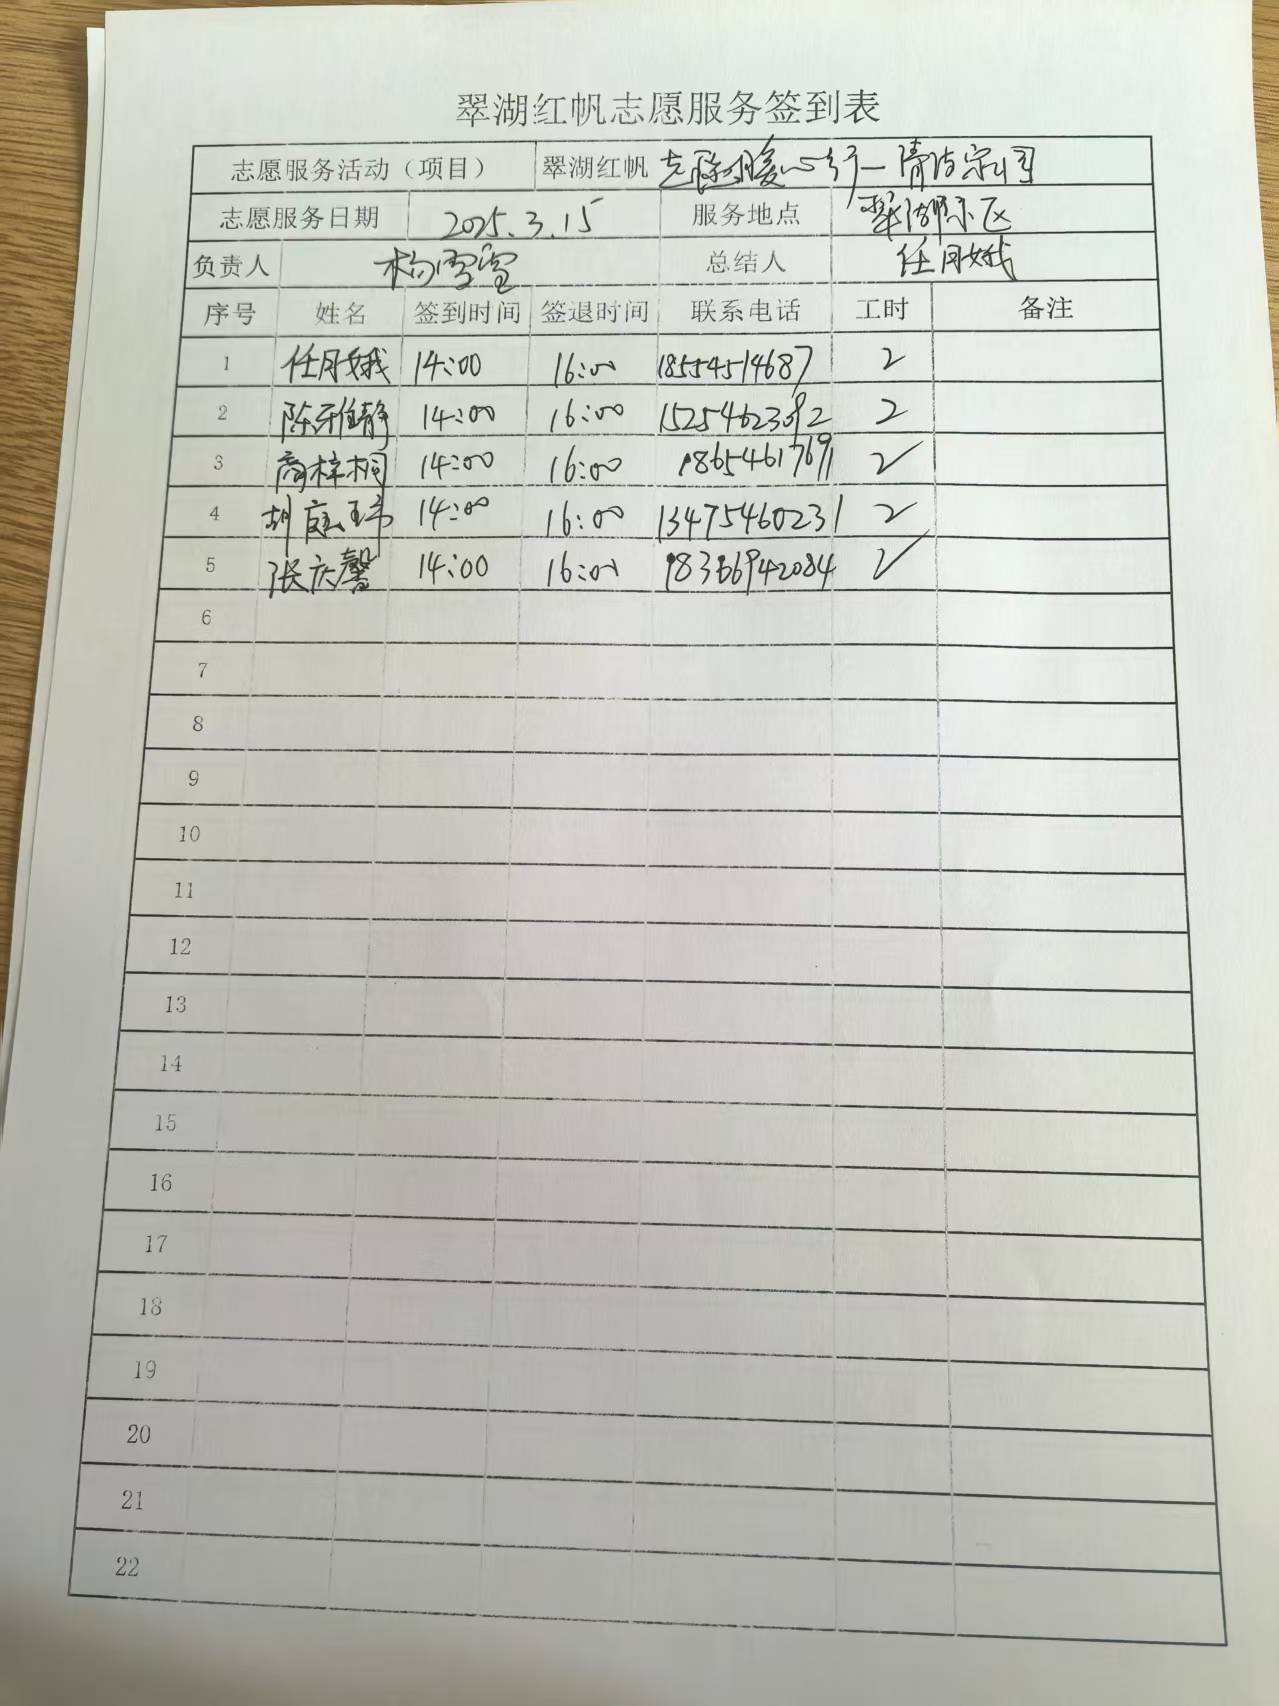 翠湖红帆志愿服务签到表
志愿服务活动（项目） 翠湖红帆 志愿暖心行—清洁家园
志愿服务日期 2025.3.15 服务地点 翠湖社区
负责人 杨雪莹 总结人 任月娥
序号 姓名 签到时间 签退时间 联系电话 工时 备注
1 任月娥 14:00 16:00 18554514687 2
2 陈雅静 14:00 16:00 15254623392 2
3 商梓桐 14:00 16:00 18654617691 2
4 胡庭玮 14:00 16:00 13475460231 2
5 张庆馨 14:00 16:00 18366942084 2
6
7
8
9
10
11
12
13
14
15
16
17
18
19
20
21
22